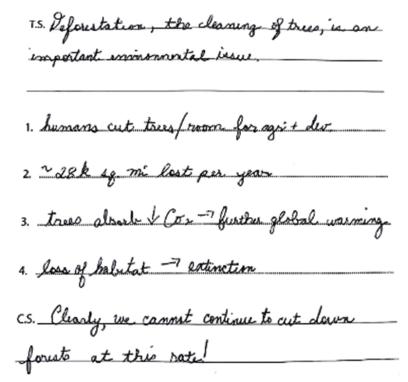 T.S. Deforestation, the clearing of trees, is an
important environmental issue.
1. humans cut trees/room for agri + dev.
2. ~28k sq. mi lost per year
3. trees absorb ↓ CO₂ → further global warming
4. loss of habitat → extinction
C.S. Clearly, we cannot continue to cut down
forests at this rate!